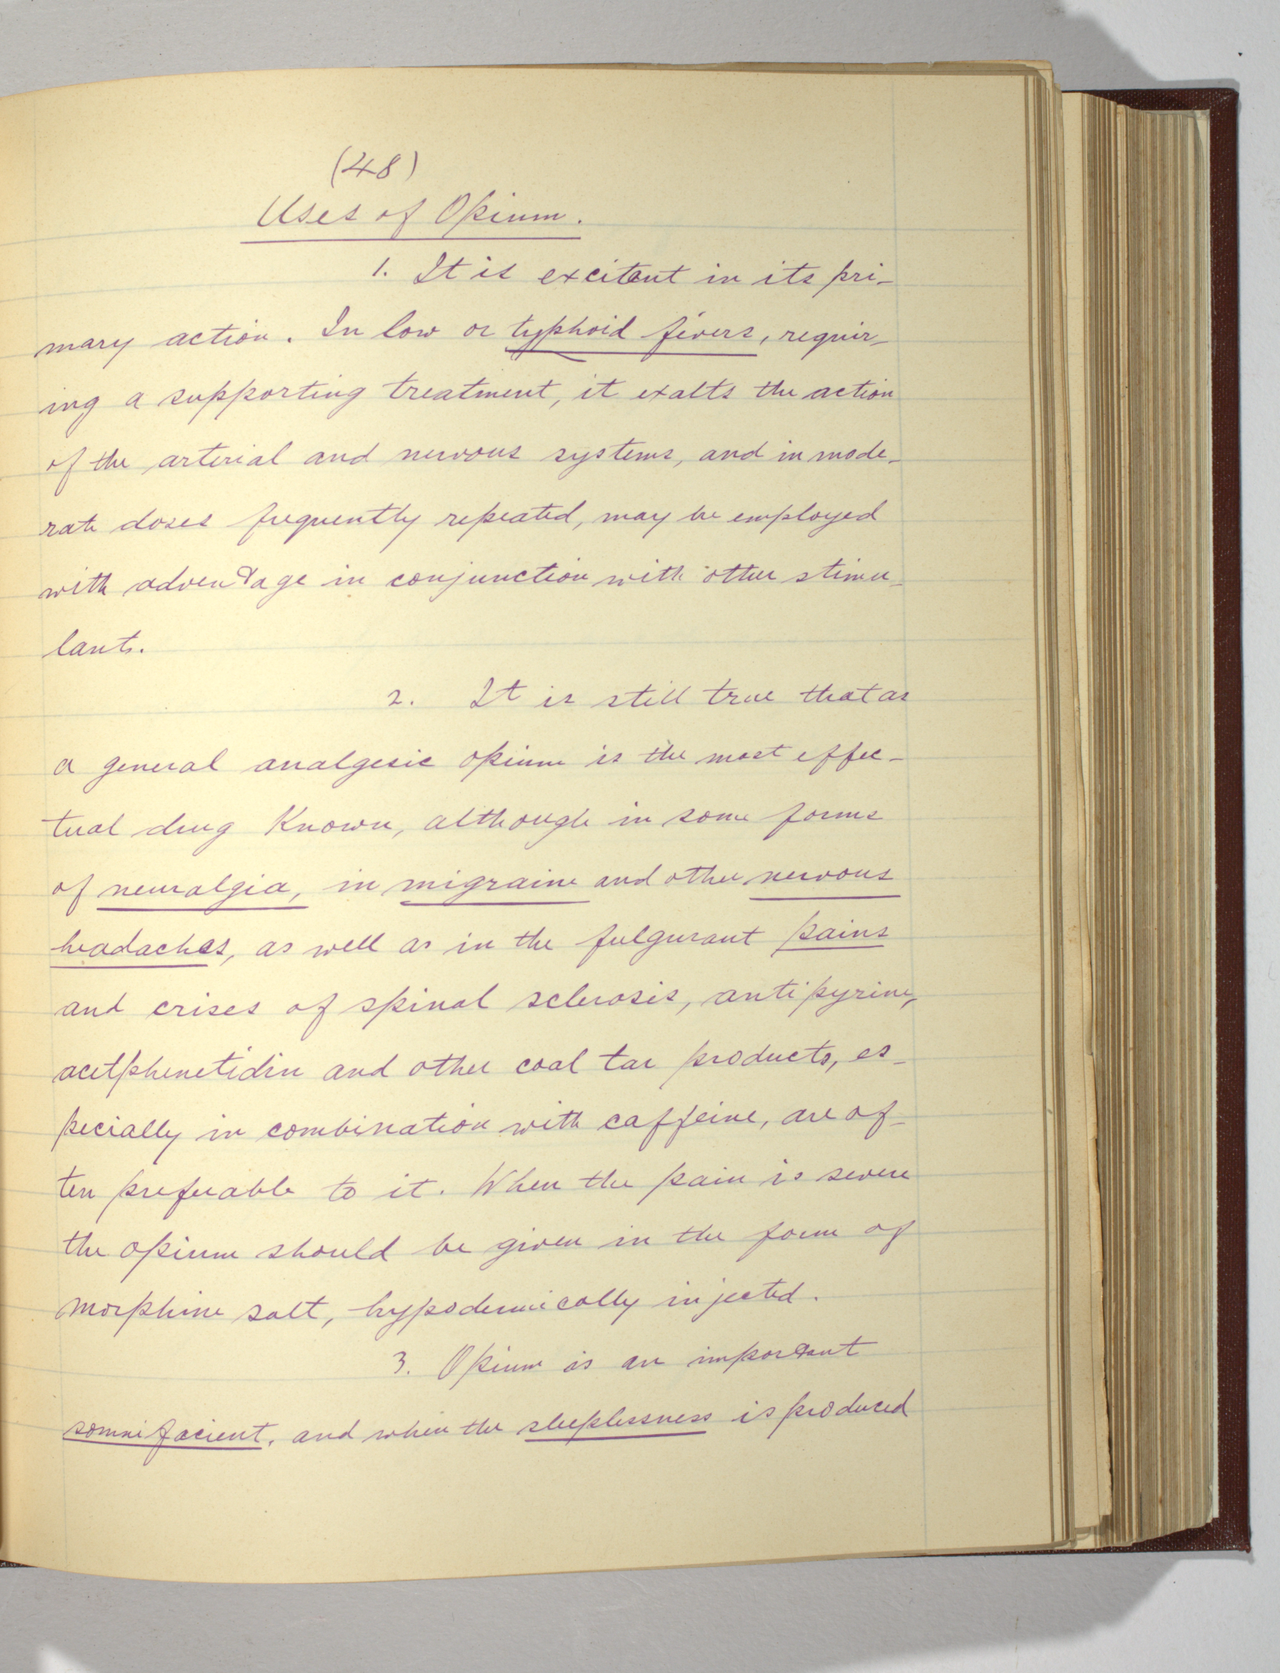 (48)
Uses of Opium.
1. It is excitent in its pri-
mary action. In low or typhoid fevers, requir-
ing a supporting treatment, it exalts the action
of the arterial and nervous systems, and in mode-
rate doses frequently repeated, may be employed
with adventage in conjunction with other stimu-
lants.
2. It is still true that as
a general analgesic opium is the most effec-
tual drug Known, although in some forms
of neuralgia, in migraine and other nervous
headaches, as well as in the fulgurant pains
and crises of spinal sclerosis, antipyrine,
acetphenetidin and other coal tar products, es-
pecially in combination with caffeine, are of-
ten preferable to it. When the pain is severe
the opium should be given in the form of
morphine salt, hypodermically injected.
3. Opium is an important
somnifacient, and when the sleeplessness is produced